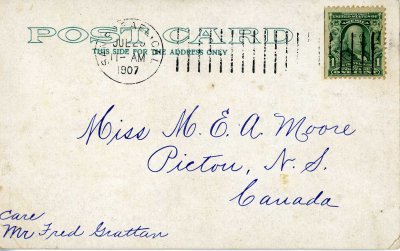 POST CARD
THIS SIDE FOR THE ADDRESS ONLY
11-AM
1907
Miss M. E. A. Moore
Pictou, N. S.
Canada
Care
Mr Fred Grattan